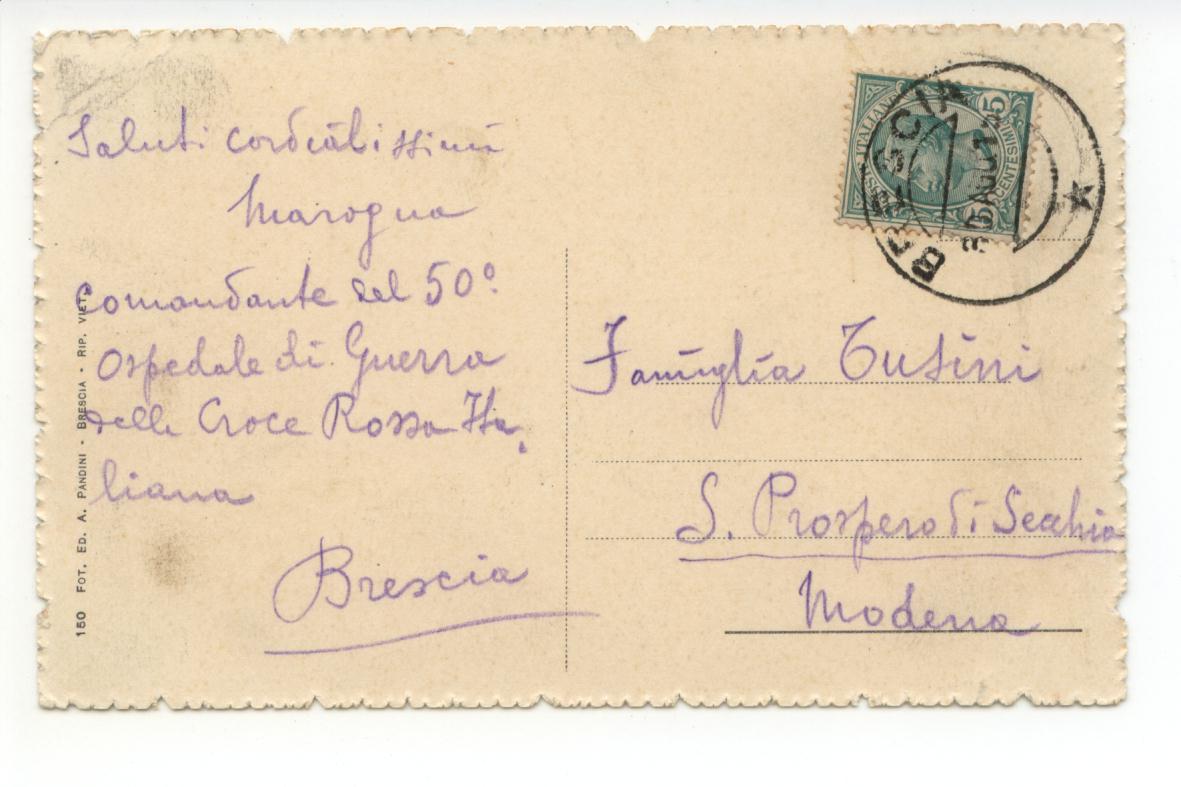 Saluti cordialissimi
Marogna
comandante del 50º.
Ospedale di Guerra
della Croce Rossa Ita,
liana
Brescia
150 FOT. ED. A. PANDINI - BRESCIA - RIP. VIET.
POSTE ITALIANE
CENTESIMI 5
BRESCIA
Famiglia Tusini
S. Prospero di Secchia
Modena